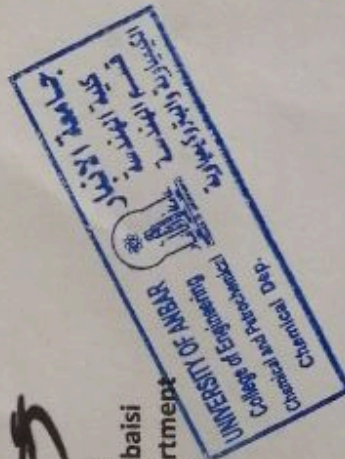 baisi
rtment
جامعة الانبار
كلية الهندسة
قسم الهندسة
الكيمياوية والبتروكيمياوية
UNIVERSITY OF ANBAR
College of Engineering
Chemical and Petrochemical
Chemical Dep.